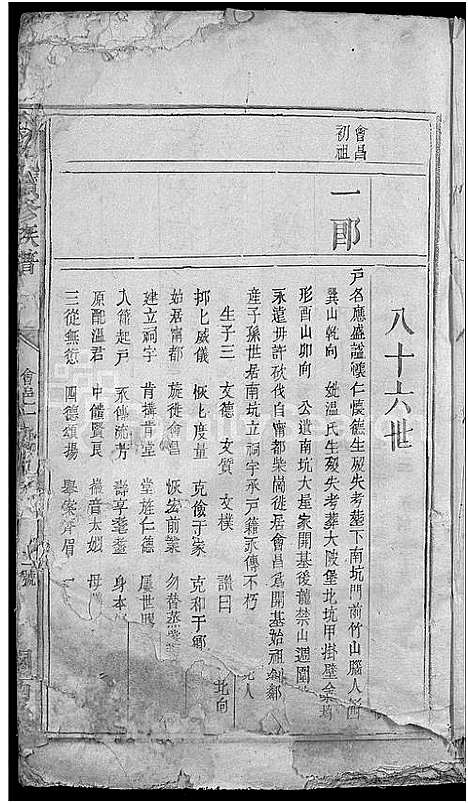 八十六世
會昌
初祖
一郎
戶名應盛諡懷仁懷德生歿失考葬下南坑門前竹山腦人形
巽山乾向 妣溫氏生歿失考葬大陂堡北坑甲掛壁金
形酉山卯向 公遺南坑大屋家開基後龍禁山週圍
永遠毋許砍伐自甯都柴崗徙居會昌爲開基始祖
產子孫世居南坑立祠宇承戶籍永傳不朽
生子三 文德 文質 文樸 讚曰
抑抑威儀 恢恢度量 克儉于家 克和于鄉
始居甯都 旋徙會昌 恢宏前業 勿替蒸嘗
建立祠宇 肯搆肯堂 堂旌仁德 屢世
入籍起戶 永傳流芳 壽享耄耋 身本
原配溫君 中饋賢良 徽音太姒 母
三從無愆 四德頌揚 舉案齊眉
北向
族譜
會邑
號